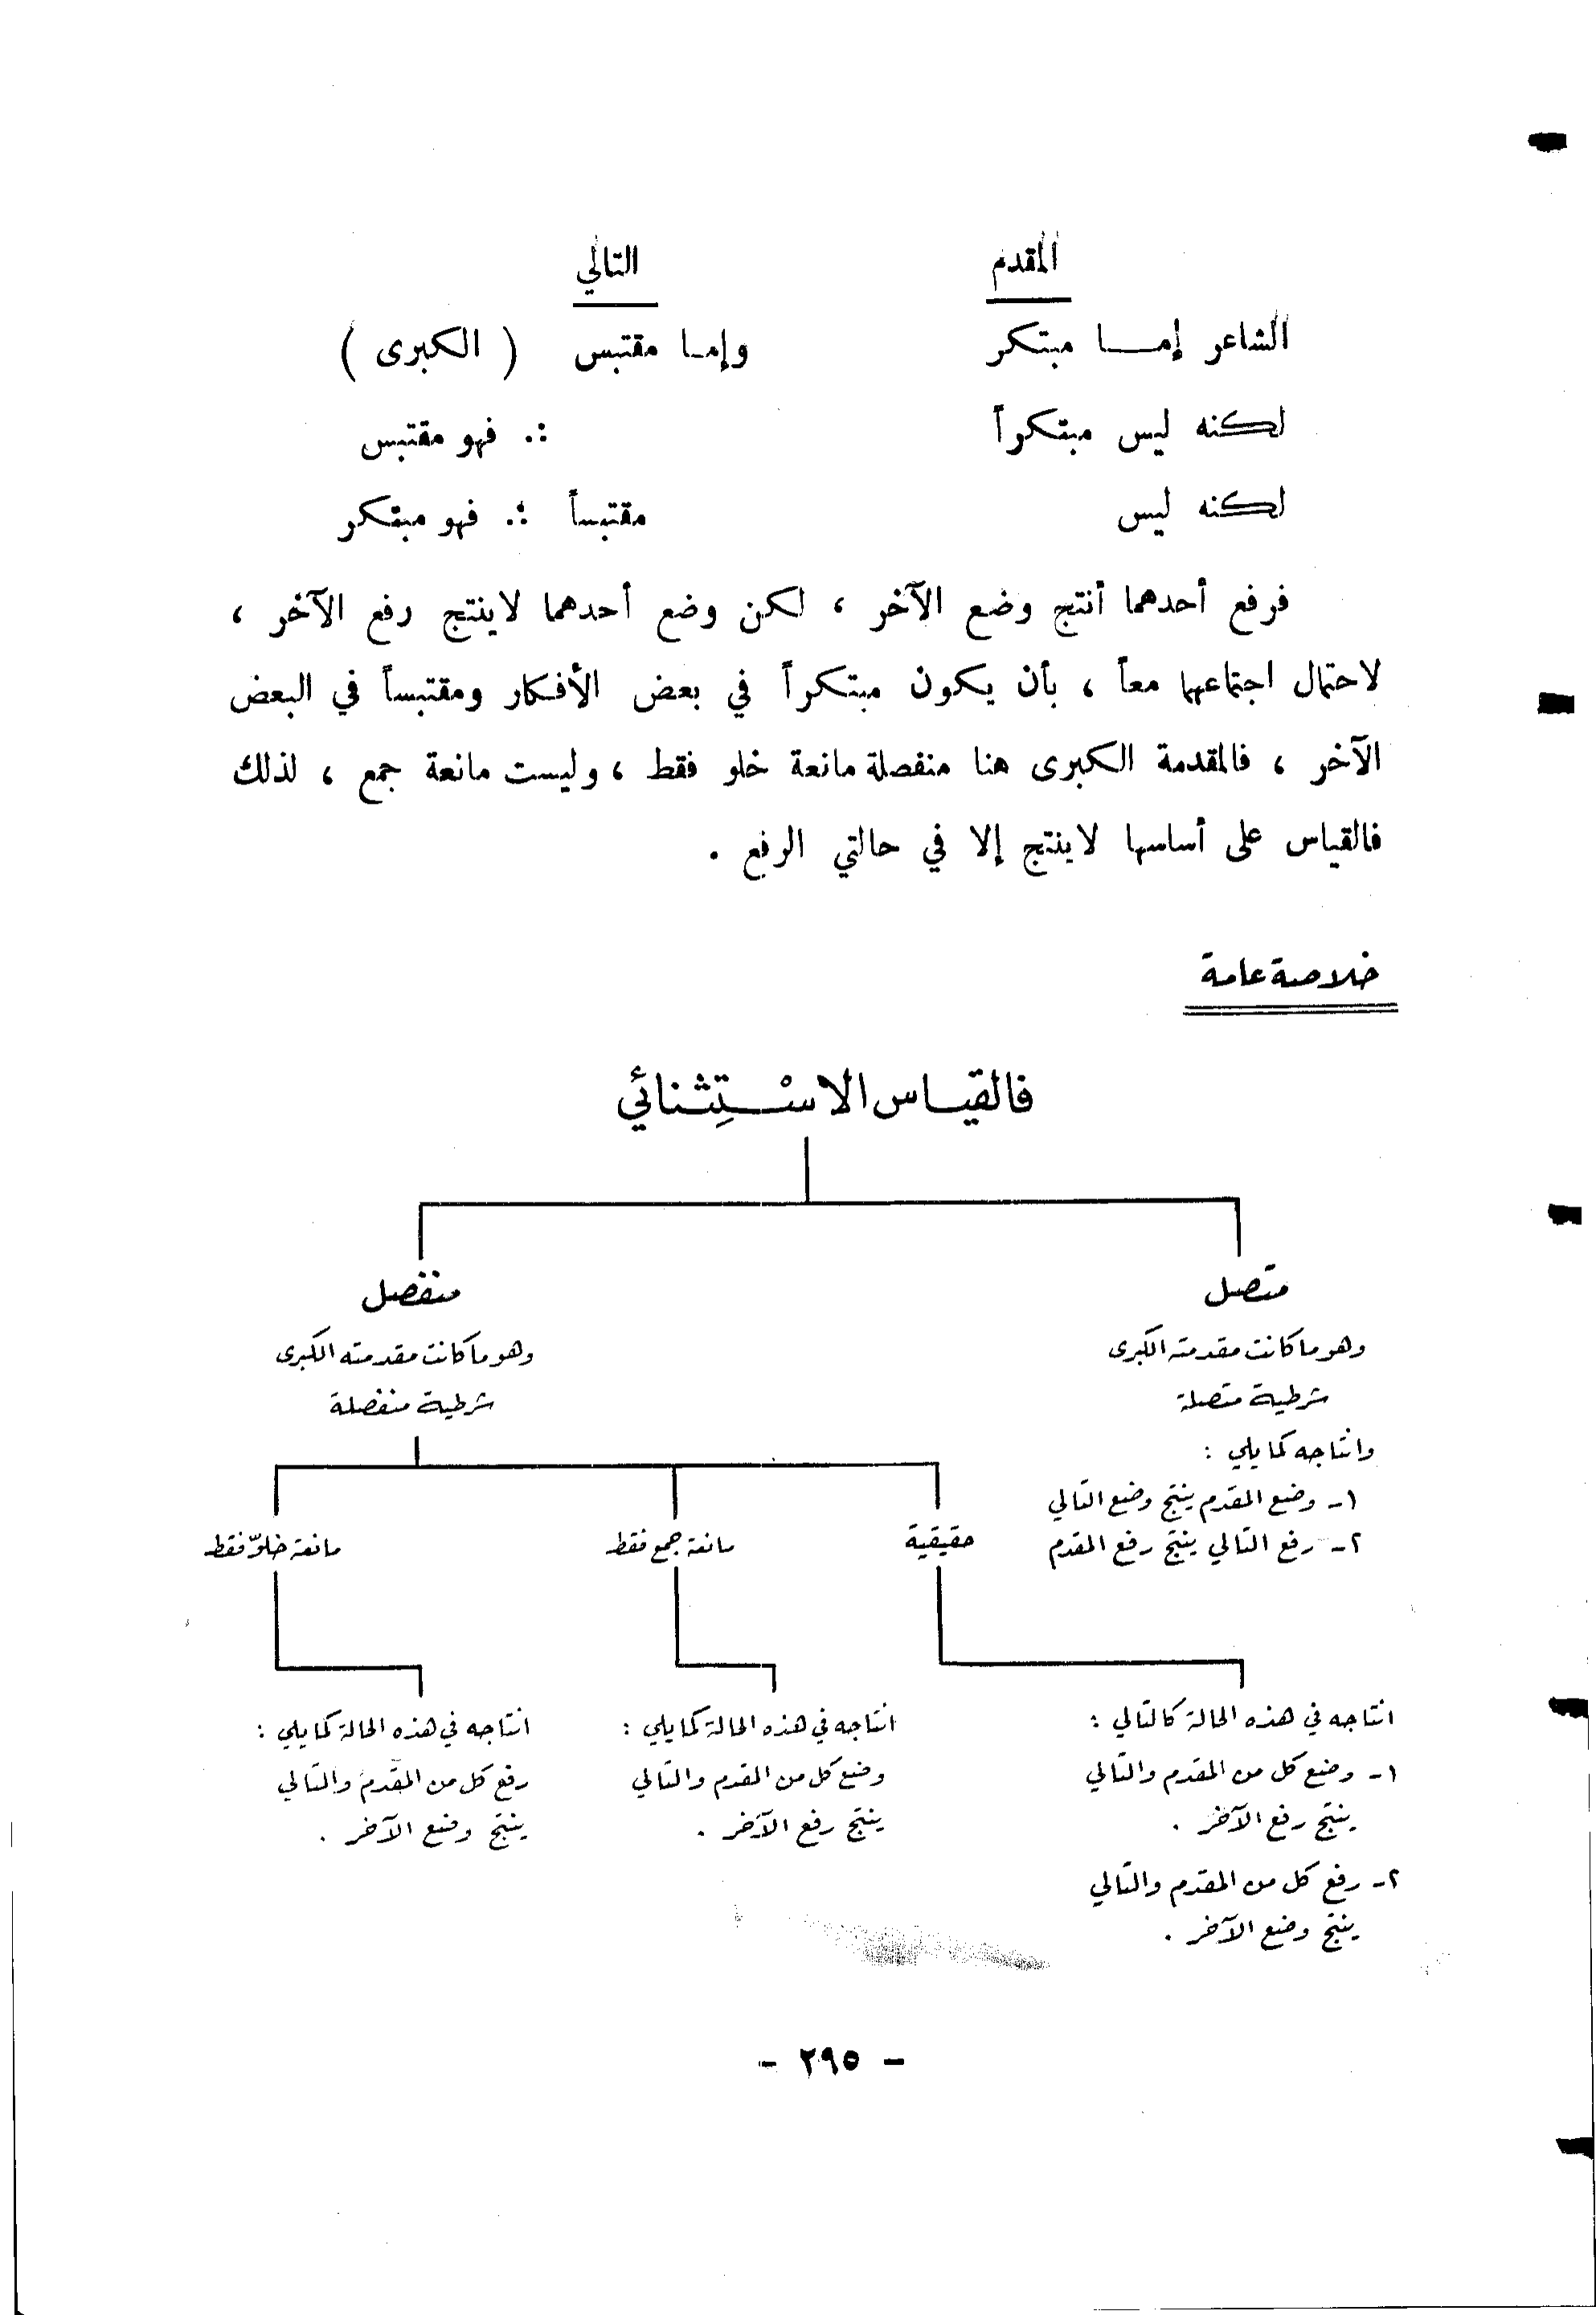 المقدم    التالي
الشاعر إمـــا مبتكر    وإمـا مقتبس ( الكبرى )
لكنه ليس مبتكراً    ∴ فهو مقتبس
لكنه ليس    مقتبساً ∴ فهو مبتكر
فرفع أحدهما أنتج وضع الآخر ، لكن وضع أحدهما لاينتج رفع الآخر ،
لاحتمال اجتماعهما معاً ، بأن يكون مبتكراً في بعض الأفكار ومقتبساً في البعض
الآخر ، فالمقدمة الكبرى هنا منفصلة مانعة خلو فقط ، وليست مانعة جمع ، لذلك
فالقياس على أساسها لاينتج إلا في حالتي الرفع .
خلاصة عامة
فالقيـاس الاسْـتِثـنائي
متصل
وهو ما كانت مقدمته الكبرى
شرطية متصلة
وانتاجه كما يلي :
١- وضع المقدم ينتج وضع التالي
٢- رفع التالي ينتج رفع المقدم
منفصل
وهو ما كانت مقدمته الكبرى
شرطية منفصلة
حقيقية
مانعة جمع فقط
مانعة خلوّ فقط
انتاجه في هذه الحالة كالتالي :
١- وضع كل من المقدم والتالي
ينتج رفع الآخر .
٢- رفع كل من المقدم والتالي
ينتج وضع الآخر .
انتاجه في هذه الحالة كما يلي :
وضع كل من المقدم والتالي
ينتج رفع الآخر .
انتاجه في هذه الحالة كما يلي :
رفع كل من المقدم والتالي
ينتج وضع الآخر .
- ٢٩٥ -